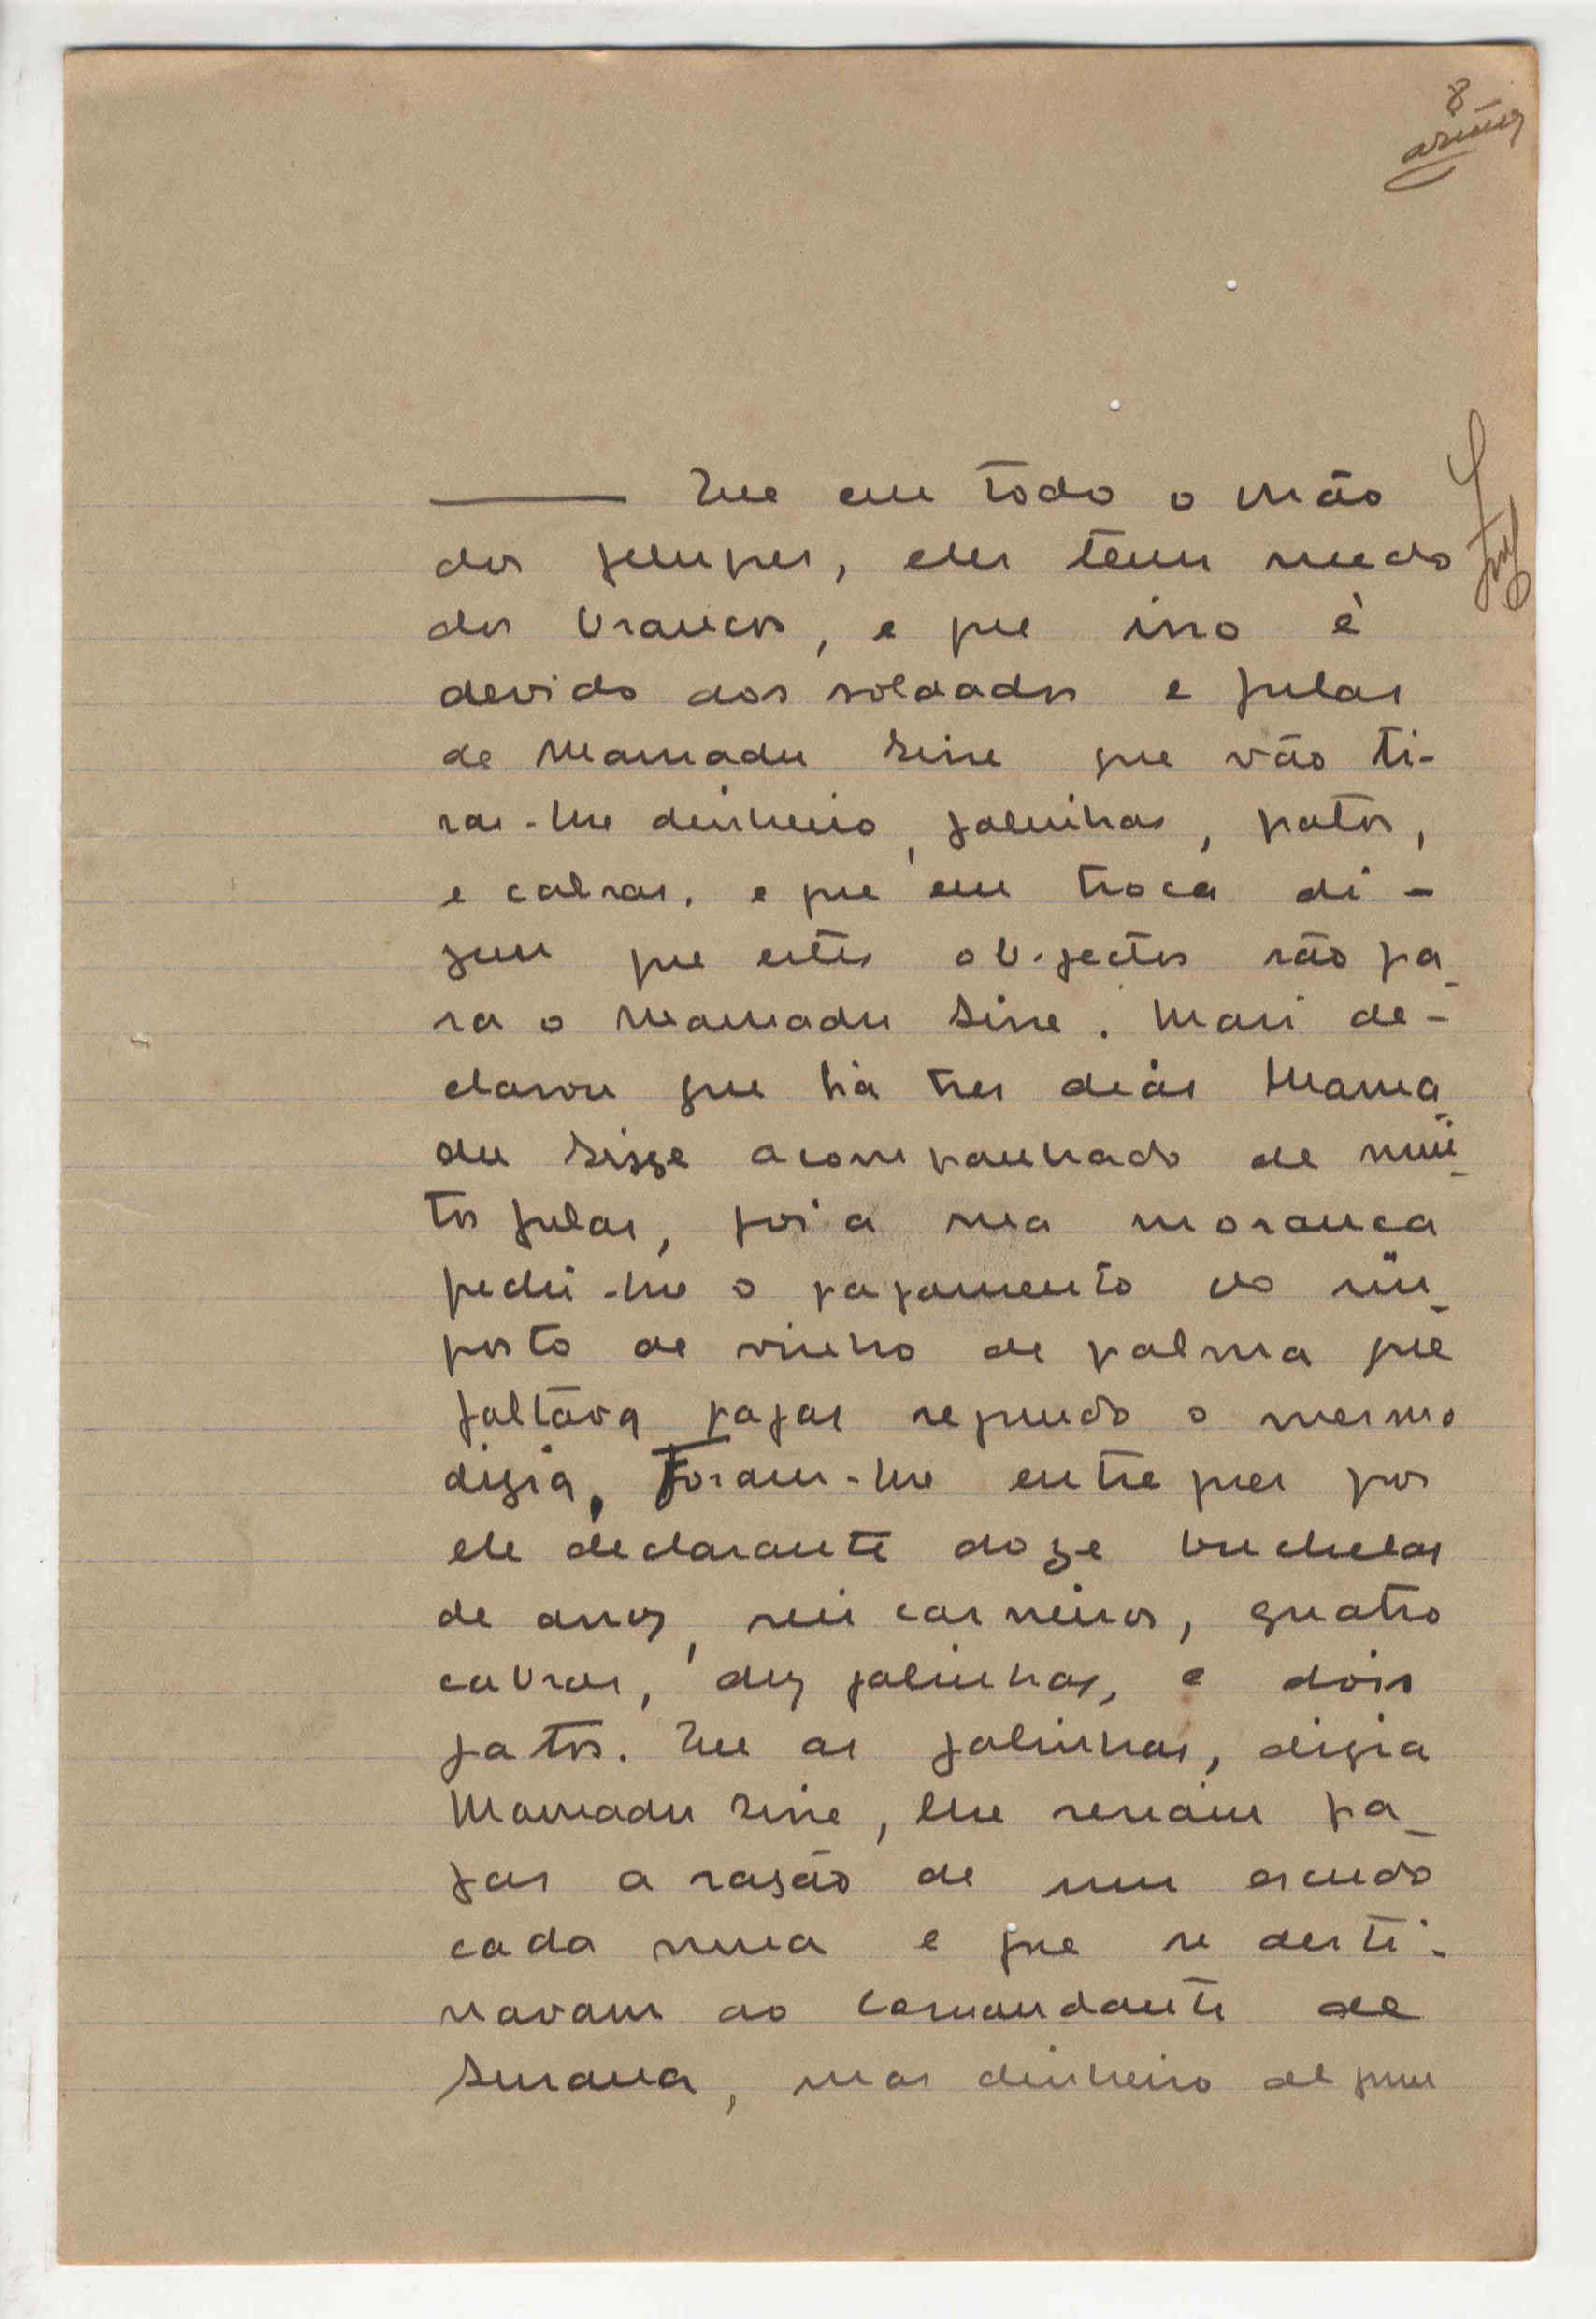 8
Que em todo o chão
dos felupes, eles tem medo
dos brancos, e que isso é
devido aos soldados e fulas
de Mamadu Sisse que vão ti-
rar-lhe dinheiro, galinhas, patos,
e cabras, e que em troca di-
zem que estes objectos são pa-
ra o Mamadu Sisse. Mais de-
clarou que há tres dias Mama-
du Sisse acompanhado de mui-
tos fulas, foi a sua morança
pedir-lhe o pagamento do im-
posto de vinho de palma que
faltava pagar segundo o mesmo
dizia, Foram-lhe entregues por
ele declarante doze bucheias
de arroz, seis carneiros, quatro
cabras, dez galinhas, e dois
patos. Que as galinhas, dizia
Mamadu Sisse, lhe seriam pa-
gas a rasão de um escudo
cada uma e que se desti-
navam ao Comandante de
Susana, mas dinheiro algum